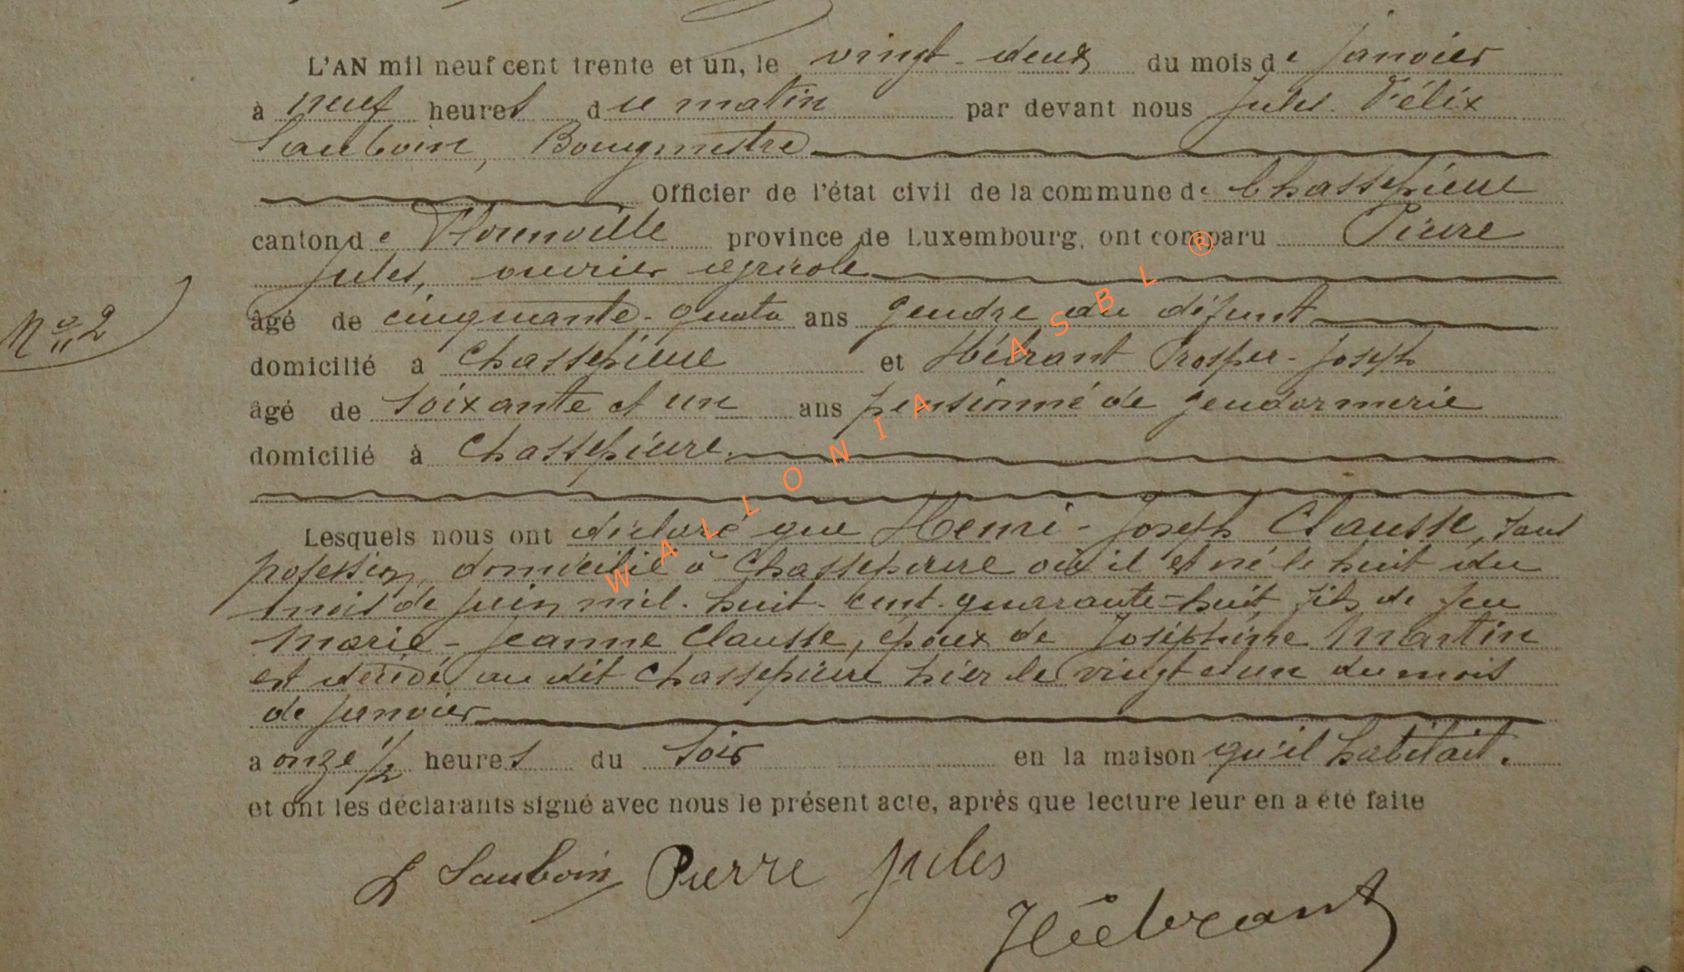 L'AN mil neuf cent trente et un, le vingt-deux du mois de janvier
à neuf heures du matin par devant nous Jules Félix
Sauboin, Bourgmestre
Officier de l'état civil de la commune de Chassepierre
canton de Florenville province de Luxembourg, ont comparu Pierre
Jules, ouvrier agricole
âgé de cinquante-quatre ans gendre du défunt
N° 2
domicilié à Chassepierre et Hébrant Prosper-Joseph
âgé de soixante et un ans pensionné de gendarmerie
domicilié à Chassepierre.
Lesquels nous ont déclaré que Henri-Joseph Clausse, sans
profession, domicilié à Chassepierre où il est né le huit du
mois de juin mil-huit-cent-quarante-huit fils de feu
Marie-Jeanne Clausse, époux de Joséphine Martin
est décédé au dit Chassepierre hier le vingt et un du mois
de janvier
à onze 1/2 heures du soir en la maison qu'il habitait.
et ont les déclarants signé avec nous le présent acte, après que lecture leur en a été faite
Sauboin Pierre Jules
Hébrant
WALLONIA ASBL ®